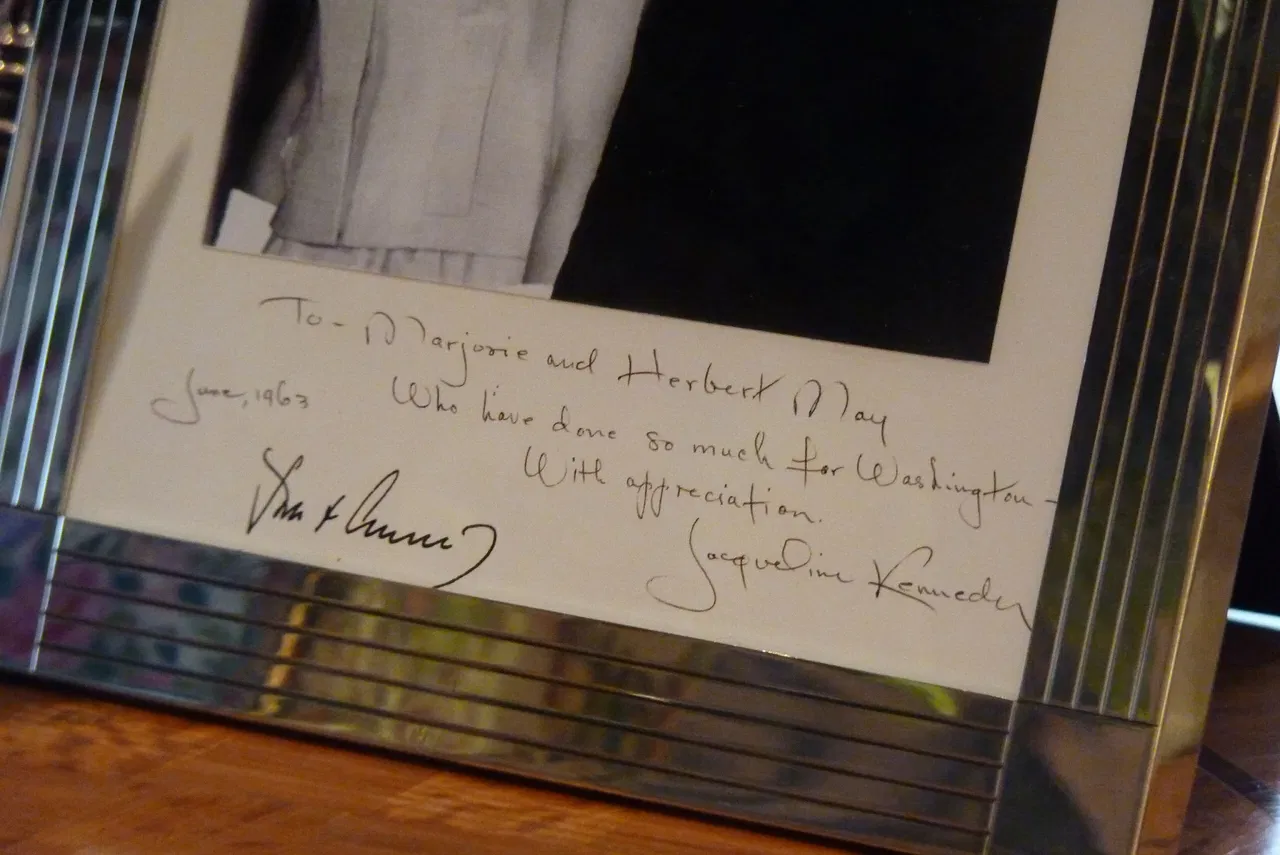 To- Marjorie and Herbert May
Who have done so much for Washington -
June, 1963
With appreciation.
Jacqueline Kennedy